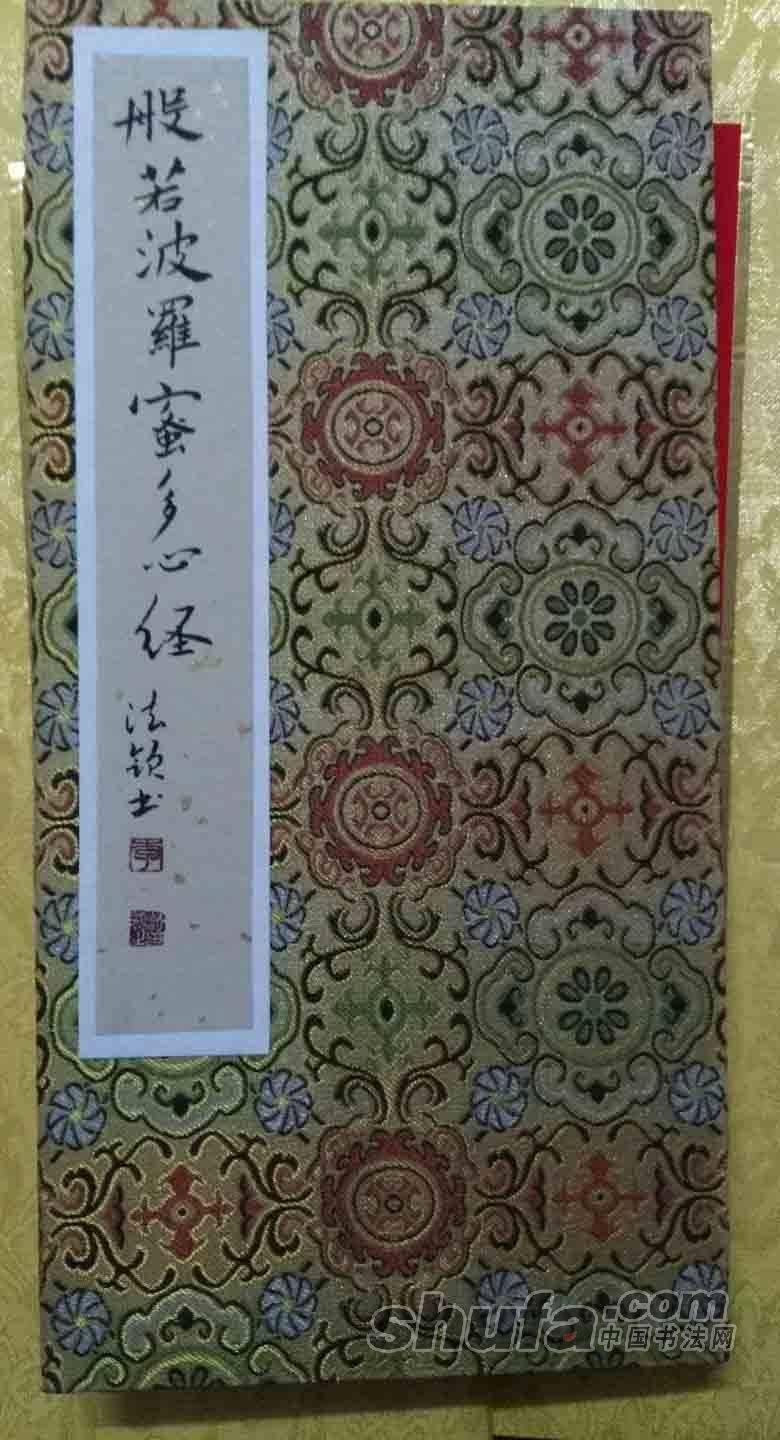 般若波羅蜜多心经
法领书
shufa.com
中国书法网